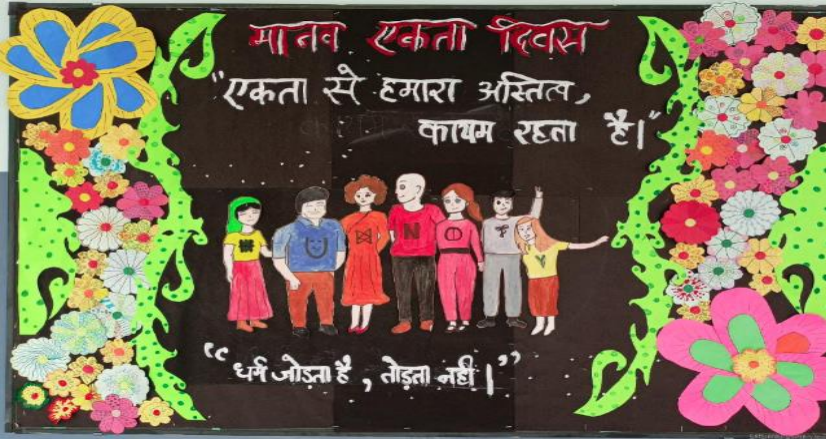 मानव एकता दिवस
"एकता से हमारा अस्तित्व,
कायम रहता है।"
# U N I T Y
"धर्म जोड़ता है, तोड़ता नही।"